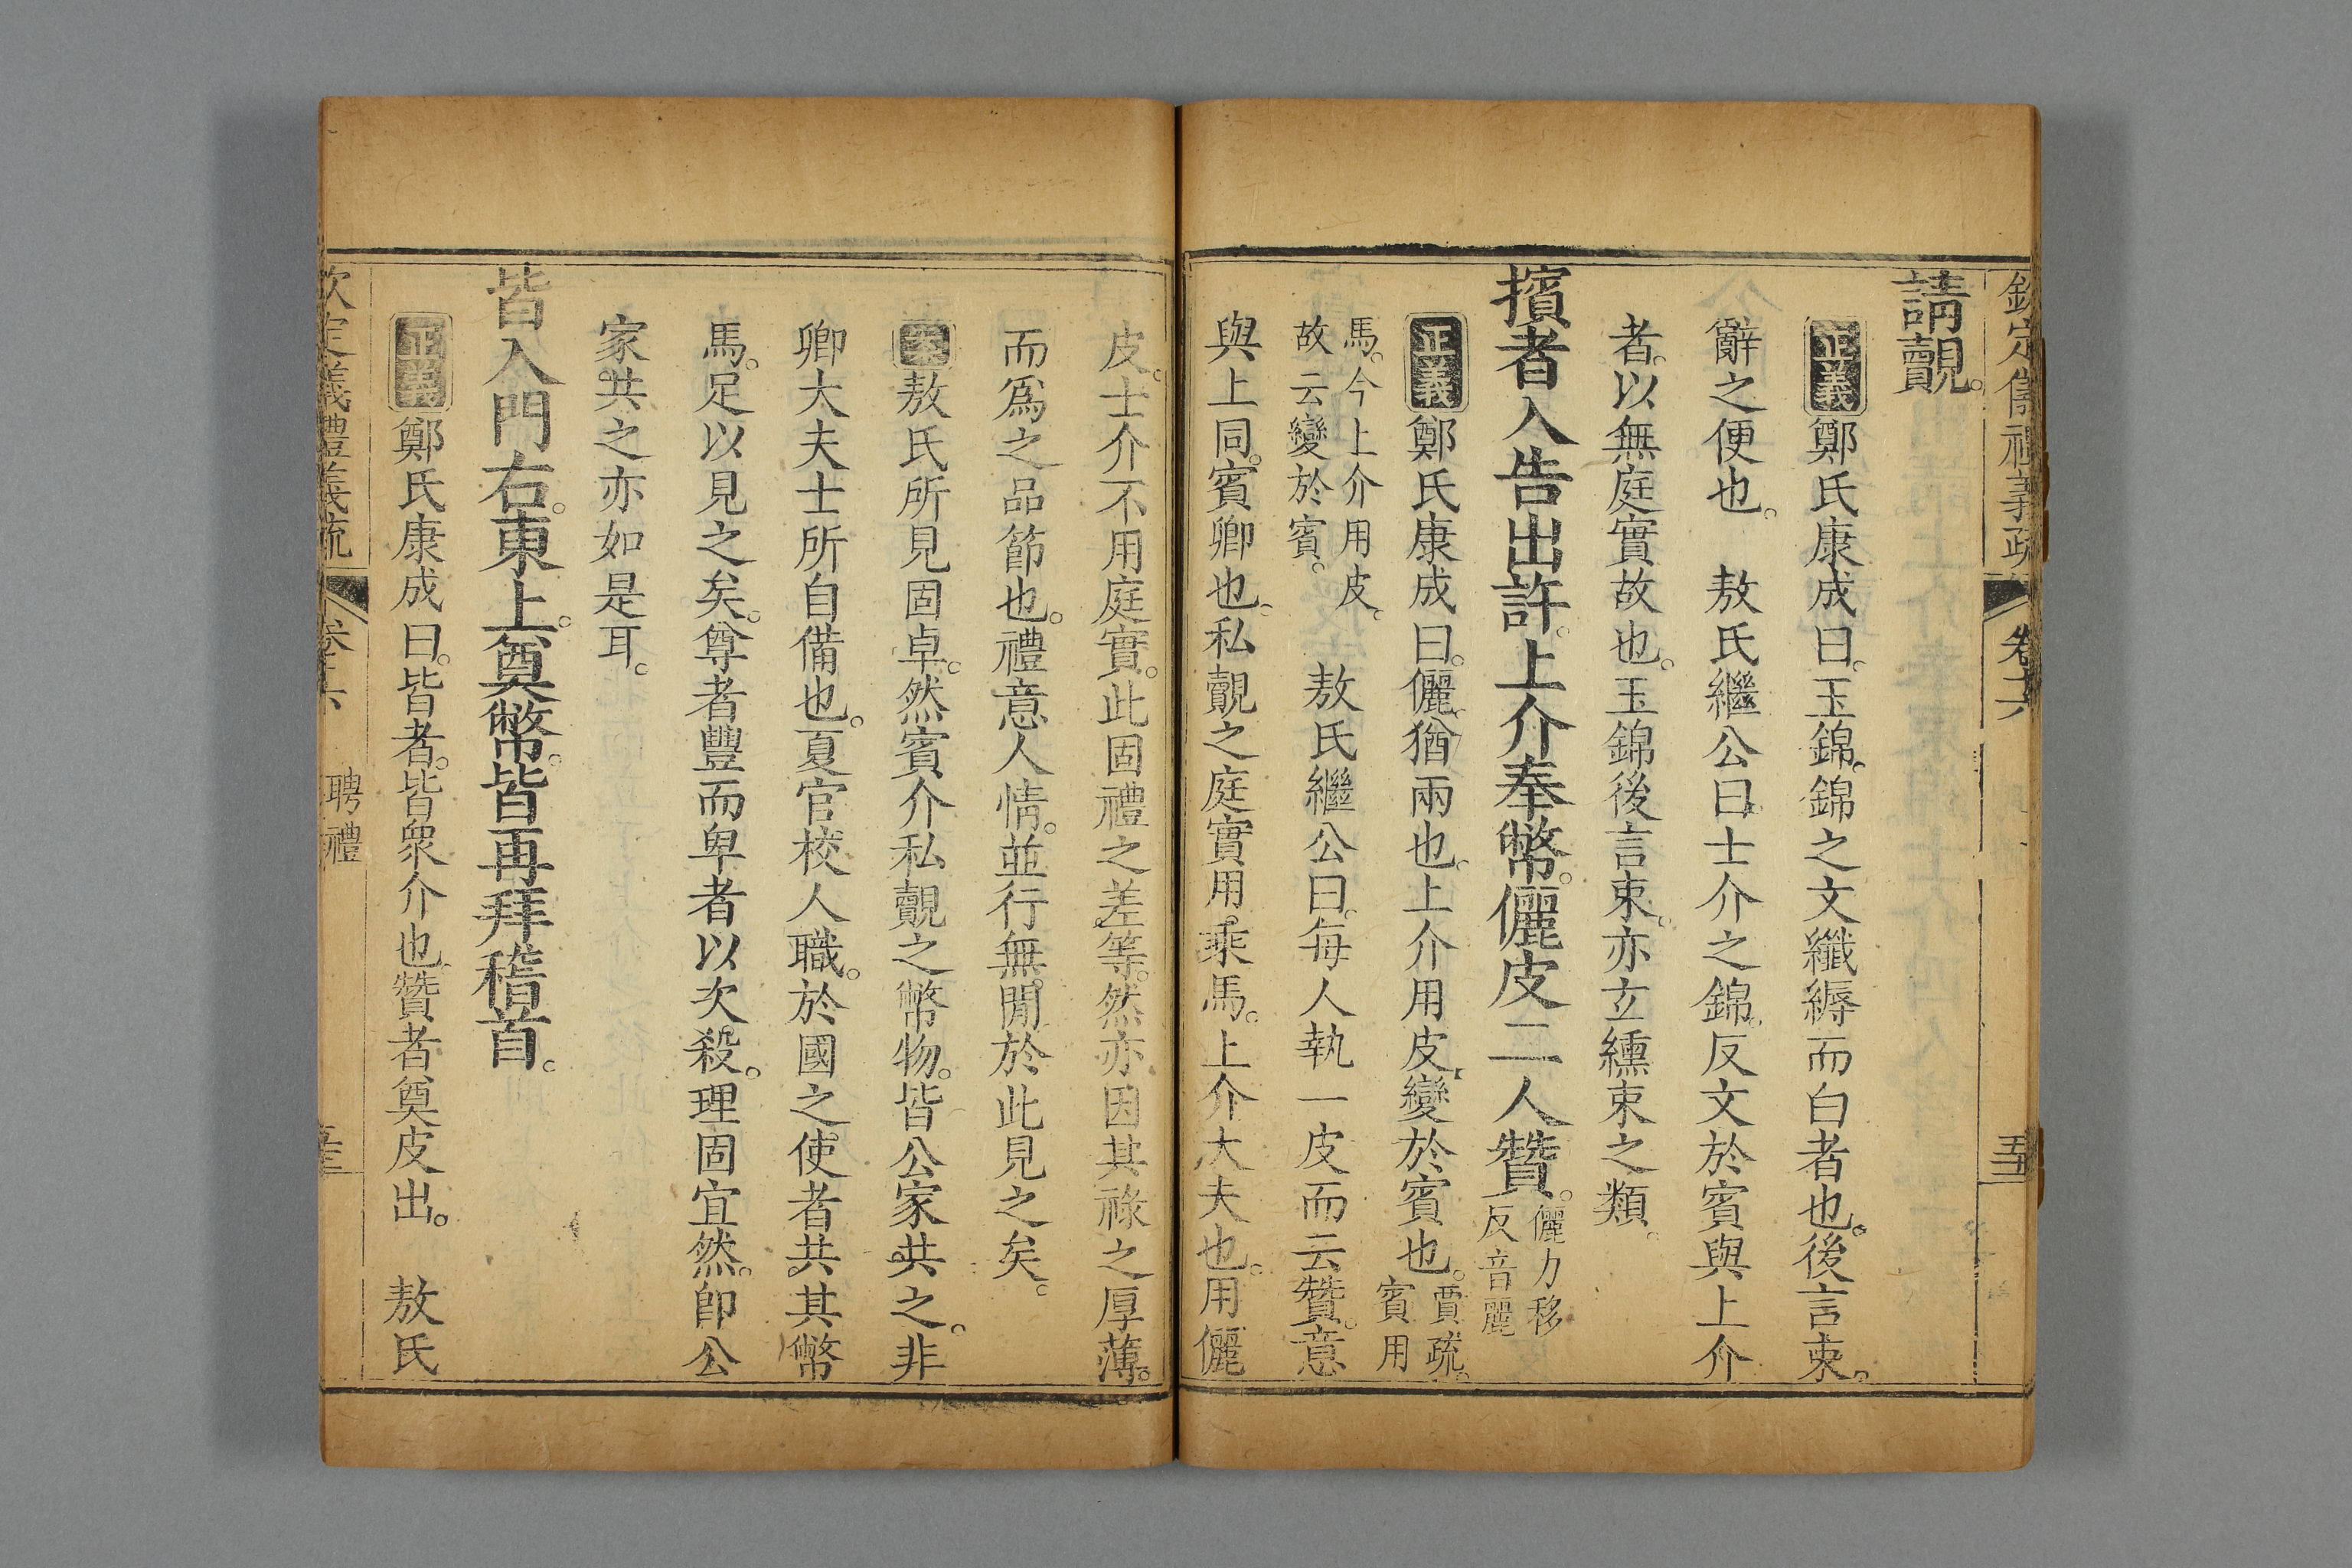 欽定儀禮義疏　卷十六
請覿。
正義鄭氏康成曰。玉錦。錦之文纖縟而白者也。後言束。
辭之便也。　敖氏繼公曰。士介之錦。反文於賓與上介
者。以無庭實故也。玉錦後言束。亦玄纁束之類。
擯者入告出許。上介奉幣。儷皮二人贊。儷力移
反音麗
正義鄭氏康成曰。儷猶兩也。上介用皮。變於賓也。賈疏。
賓用
馬。今上介用皮。
故云變於賓。
敖氏繼公曰。每人執一皮而云贊。意
與上同。賓卿也。私覿之庭實用乘馬。上介大夫也。用儷
皮。士介不用庭實。此固禮之差等。然亦因其祿之厚薄。
而爲之品節也。禮意人情。並行無閒。於此見之矣。
案敖氏所見固卓。然賓介私覿之幣物。皆公家共之。非
卿大夫士所自備也。夏官校人職。於國之使者。共其幣
馬。足以見之矣。尊者豐而卑者以次殺。理固宜然。卽公
家共之亦如是耳。
皆入門右。東上。奠幣。皆再拜稽首。
正義鄭氏康成曰。皆者。皆衆介也。贊者奠皮出。　敖氏
欽定儀禮義疏　卷十六　聘禮